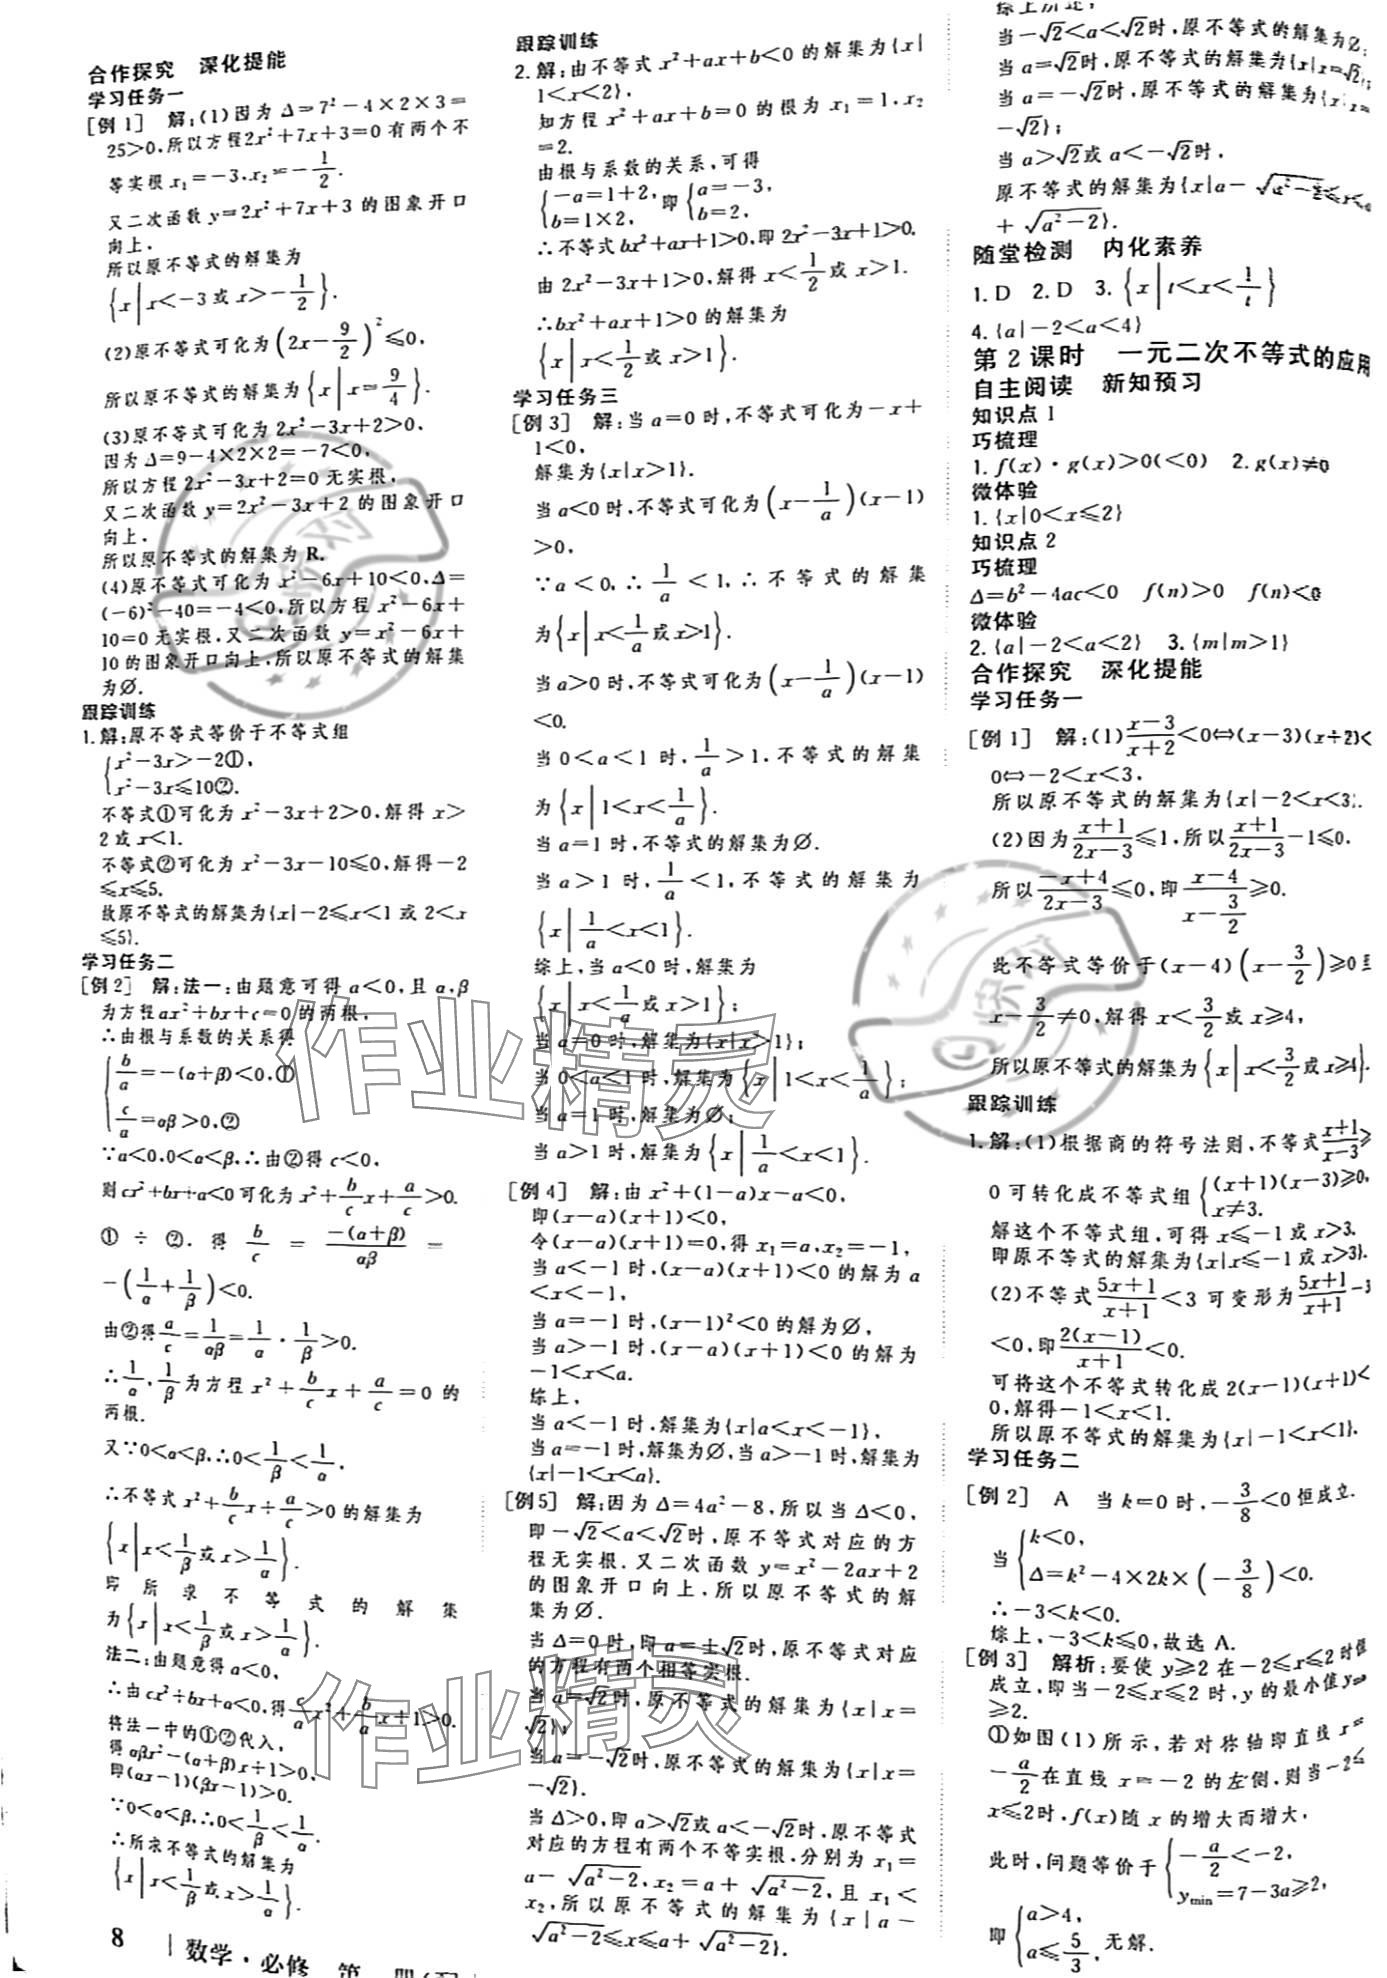 合作探究　深化提能
学习任务一
[例1]　解:(1)因为 Δ=7²-4×2×3=
25>0,所以方程2x²+7x+3=0有两个不
等实根 x₁=-3,x₂=-1/2.
又二次函数 y=2x²+7x+3 的图象开口
向上,
所以原不等式的解集为
{x|x<-3或x>-1/2}.
(2)原不等式可化为(2x-9/2)²≤0,
所以原不等式的解集为{x|x=9/4}.
(3)原不等式可化为 2x²-3x+2>0,
因为Δ=9-4×2×2=-7<0,
所以方程2x²-3x+2=0无实根,
又二次函数 y=2x²-3x+2 的图象开口
向上,
所以原不等式的解集为 R.
(4)原不等式可化为 x²-6x+10<0,Δ=
(-6)²-40=-4<0,所以方程 x²-6x+
10=0无实根,又二次函数 y=x²-6x+
10的图象开口向上,所以原不等式的解集
为∅.
跟踪训练
1.解:原不等式等价于不等式组
{x²-3x>-2①,
x²-3x≤10②.
不等式①可化为 x²-3x+2>0,解得 x>
2或x<1.
不等式②可化为 x²-3x-10≤0,解得-2
≤x≤5.
故原不等式的解集为{x|-2≤x<1或2<x
≤5}.
学习任务二
[例2]　解:法一:由题意可得 a<0,且 α,β
为方程ax²+bx+c=0的两根,
∴由根与系数的关系得
{b/a=-(α+β)<0,①
c/a=αβ>0,②
∵a<0,0<α<β,∴由②得 c<0,
则cx²+bx+a<0可化为x²+b/c x+a/c>0.
①÷②,得 b/c = -(α+β)/αβ =
-(1/α+1/β)<0.
由②得a/c=1/αβ=1/α·1/β>0.
∴1/α,1/β为方程 x²+b/c x+a/c=0的
两根.
又∵0<α<β,∴0<1/β<1/α,
∴不等式x²+b/c x+a/c>0的解集为
{x|x<1/β或x>1/α}.
即所求不等式的解集
为{x|x<1/β或x>1/α}.
法二:由题意得a<0,
∴由cx²+bx+a<0,得c/a x²+b/a x+1>0.
将法一中的①②代入,
得αβx²-(α+β)x+1>0,
即(αx-1)(βx-1)>0.
∵0<α<β,∴0<1/β<1/α.
∴所求不等式的解集为
{x|x<1/β或x>1/α}.
8　数学·必修
跟踪训练
2.解:由不等式x²+ax+b<0的解集为{x|
1<x<2},
知方程 x²+ax+b=0 的根为 x₁=1,x₂
=2.
由根与系数的关系,可得
{-a=1+2,
b=1×2, 即{a=-3,
b=2,
∴不等式bx²+ax+1>0,即2x²-3x+1>0.
由 2x²-3x+1>0,解得 x<1/2或 x>1.
∴bx²+ax+1>0的解集为
{x|x<1/2或x>1}.
学习任务三
[例3]　解:当 a=0 时,不等式可化为-x+
1<0,
解集为{x|x>1}.
当a<0时,不等式可化为(x-1/a)(x-1)
>0,
∵a<0,∴1/a<1,∴不等式的解集
为{x|x<1/a或x>1}.
当a>0时,不等式可化为(x-1/a)(x-1)
<0.
当 0<a<1 时,1/a>1,不等式的解集
为{x|1<x<1/a}.
当a=1时,不等式的解集为∅.
当 a>1 时,1/a<1,不等式的解集为
{x|1/a<x<1}.
综上,当a<0时,解集为
{x|x<1/a或x>1};
当a=0时,解集为{x|x>1};
当0<a<1时,解集为{x|1<x<1/a};
当a=1时,解集为∅;
当a>1时,解集为{x|1/a<x<1}.
[例4]　解:由 x²+(1-a)x-a<0,
即(x-a)(x+1)<0,
令(x-a)(x+1)=0,得 x₁=a,x₂=-1,
当a<-1时,(x-a)(x+1)<0的解为a
<x<-1,
当a=-1时,(x-1)²<0的解为∅,
当a>-1时,(x-a)(x+1)<0 的解为
-1<x<a.
综上,
当a<-1时,解集为{x|a<x<-1},
当a=-1时,解集为∅,当a>-1时,解集为
{x|-1<x<a}.
[例5]　解:因为 Δ=4a²-8,所以当 Δ<0,
即-√2<a<√2时,原不等式对应的方
程无实根.又二次函数 y=x²-2ax+2
的图象开口向上,所以原不等式的解
集为∅.
当Δ=0时,即a=±√2时,原不等式对应
的方程有两个相等实根.
当a=√2时,原不等式的解集为{x|x=
√2};
当a=-√2时,原不等式的解集为{x|x=
-√2}.
当Δ>0,即a>√2或a<-√2时,原不等式
对应的方程有两个不等实根,分别为 x₁=
a-√(a²-2),x₂=a+√(a²-2),且 x₁<
x₂,所以原不等式的解集为{x|a-
√(a²-2)≤x≤a+√(a²-2)}.
综上所述,
当-√2<a<√2时,原不等式的解集为∅;
当a=√2时,原不等式的解集为{x|x=√2};
当a=-√2时,原不等式的解集为{x|x=
-√2};
当a>√2或a<-√2时,
原不等式的解集为{x|a-√(a²-2)≤x≤a
+√(a²-2)}.
随堂检测　内化素养
1.D　2.D　3.{x|t<x<1/t}
4.{a|-2<a<4}
第2课时　一元二次不等式的应用
自主阅读　新知预习
知识点1
巧梳理
1.f(x)·g(x)>0(<0)　2.g(x)≠0
微体验
1.{x|0<x≤2}
知识点2
巧梳理
Δ=b²-4ac<0　f(n)>0　f(n)<0
微体验
2.{a|-2<a<2}　3.{m|m>1}
合作探究　深化提能
学习任务一
[例1]　解:(1)(x-3)/(x+2)<0⇔(x-3)(x+2)<
0⇔-2<x<3,
所以原不等式的解集为{x|-2<x<3}.
(2)因为(x+1)/(2x-3)≤1,所以(x+1)/(2x-3)-1≤0,
所以(-x+4)/(2x-3)≤0,即(x-4)/(x-3/2)≥0.
此不等式等价于(x-4)(x-3/2)≥0且
x-3/2≠0,解得x<3/2或x≥4,
所以原不等式的解集为{x|x<3/2或x≥4}.
跟踪训练
1.解:(1)根据商的符号法则,不等式(x+1)/(x-3)≥
0可转化成不等式组{(x+1)(x-3)≥0,
x≠3.
解这个不等式组,可得 x≤-1或x>3.
即原不等式的解集为{x|x≤-1或x>3}.
(2)不等式(5x+1)/(x+1)<3可变形为(5x+1)/(x+1)-3
<0,即2(x-1)/(x+1)<0.
可将这个不等式转化成2(x-1)(x+1)<
0,解得-1<x<1.
所以原不等式的解集为{x|-1<x<1}.
学习任务二
[例2]　A　当k=0时,-3/8<0恒成立.
当{k<0,
Δ=k²-4×2k×(-3/8)<0.
∴-3<k<0.
综上,-3<k≤0,故选 A.
[例3]　解析:要使 y≥2在-2≤x≤2时恒
成立,即当-2≤x≤2时,y的最小值y
≥2.
①如图(1)所示,若对称轴即直线 x=
-a/2在直线 x=-2 的左侧,则当-2≤
x≤2时,f(x)随 x 的增大而增大,
此时,问题等价于{-a/2<-2,
ymin=7-3a≥2,
即{a>4,
a≤5/3, 无解.
作业精灵
作业精灵